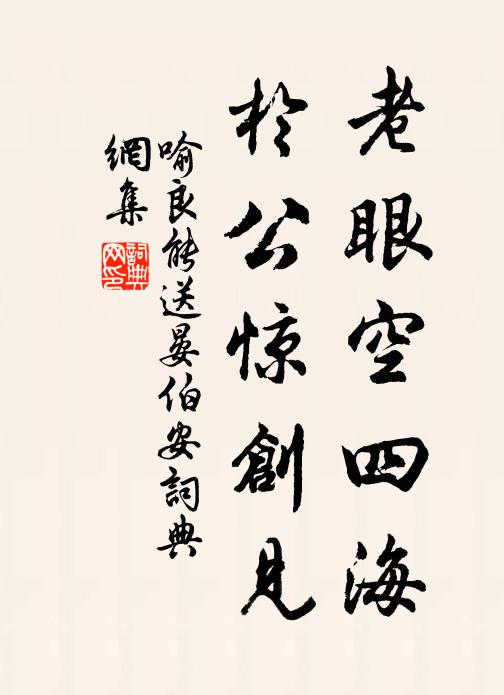 老眼空四海
於公惊創見
喻良能送晏伯安詞典
網集
詞典網印